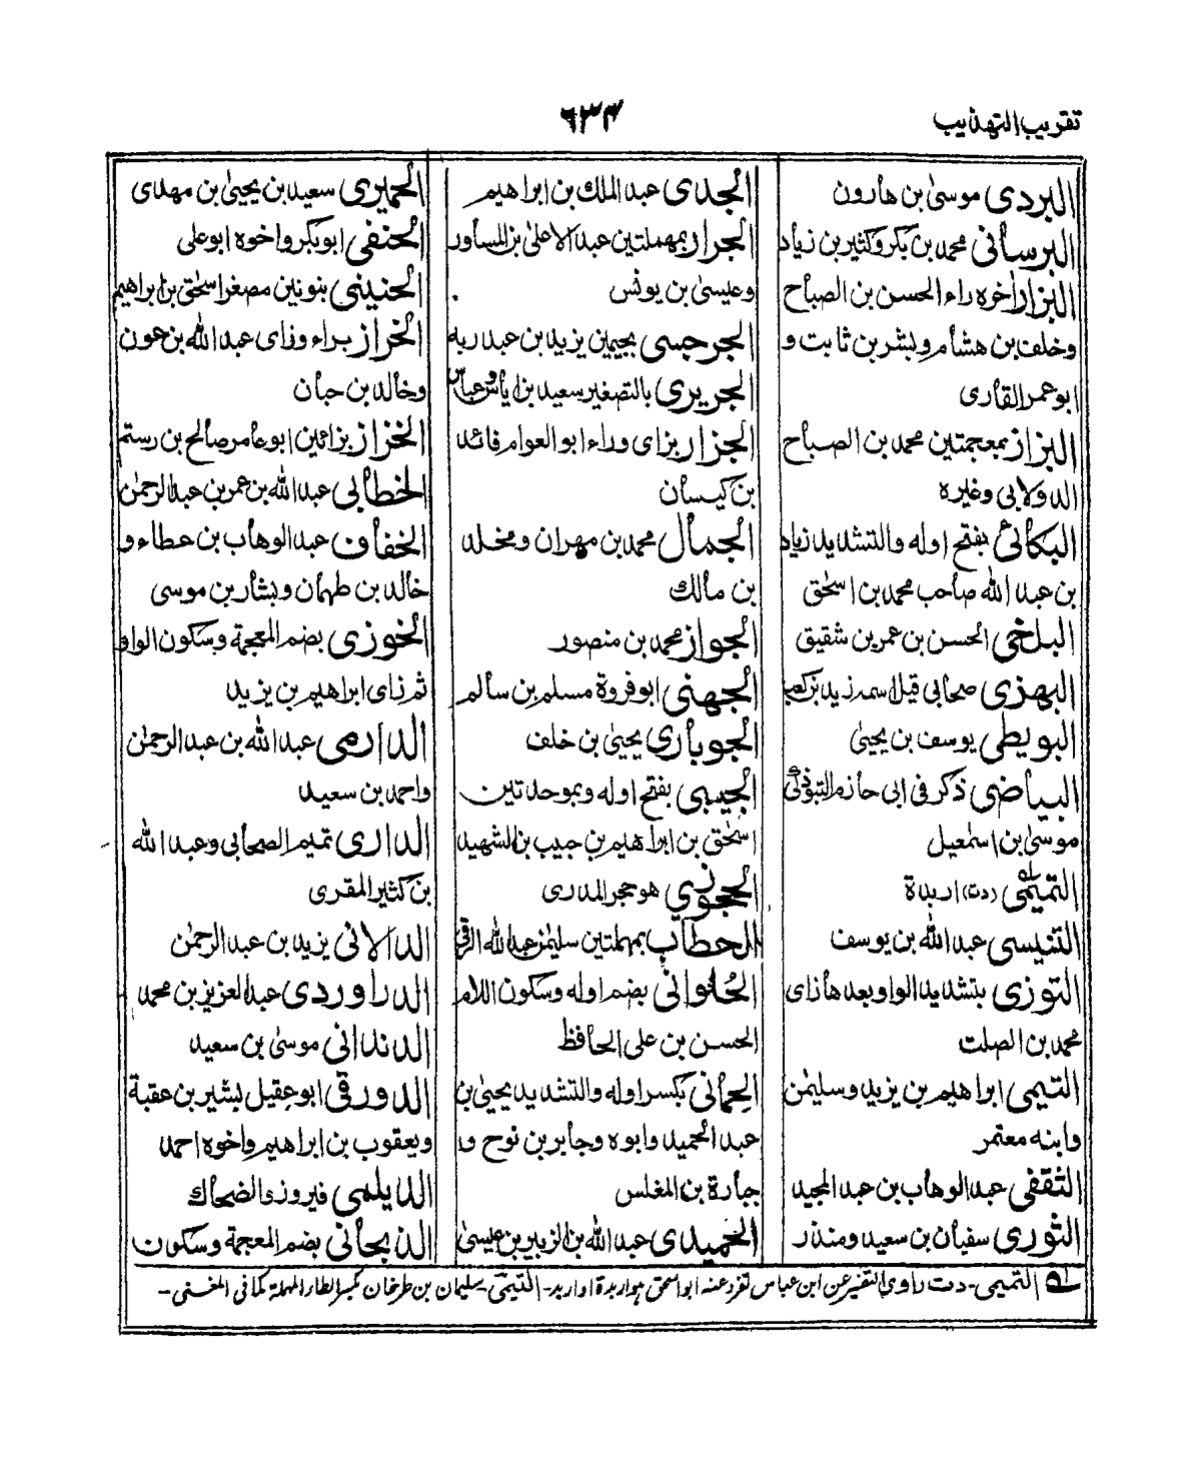 تقريب التهذيب
٦٣٤
البردى موسىٰ بن هارون
البرسانى محمد بن بكر وكثير بن زياد
البزار اخره راء الحسن بن الصباح
وخلف بن هشام وبشر بن ثابت و
ابو عمر القارى
البزاز بمعجمتين محمد بن الصباح
الدولابى وغيره
البكائى بفتح اوله والتشديد زياد
بن عبد الله صاحب محمد بن اسحٰق
البلخى الحسن بن عمر بن شقيق
البهزى صحابى قيل اسمه زيد بن كعب
البويطى يوسف بن يحيىٰ
البياضى ذكر فى ابى حازم التبوذكى
موسىٰ بن اسمٰعيل
التميمى (دت) اربدة
التنيسى عبد الله بن يوسف
التوزى بتشديد الواو بعدها زاى
محمد بن الصلت
التيمى ابراهيم بن يزيد وسليمٰن
وابنه معتمر
الثقفى عبد الوهاب بن عبد المجيد
الثورى سفيان بن سعيد ومنذر
الجدى عبد الملك بن ابراهيم
الجرار بمهملتين عبد الاعلىٰ بن المساور
وعيسىٰ بن يونس
الجرجسى بجيمين يزيد بن عبد ربه
الجريرى بالتصغير سعيد بن اياس وعباس
الجزار بزاى وراء ابو العوام فائد
بن كيسان
الجمال محمد بن مهران ومخلد
بن مالك
الجواز محمد بن منصور
الجهنى ابو فروة مسلم بن سالم
الجوبارى يحيىٰ بن خلف
الجبيبى بفتح اوله وبموحدتين
اسحٰق بن ابراهيم بن حبيب بن الشهيد
الحجورى هو حجر المدرى
الحطاب بمهملتين سليمٰن عبد الله الرقى
الحُلوانى بضم اوله وسكون اللام
الحسن بن على الحافظ
الحِمّانى بكسر اوله والتشديد يحيىٰ بن
عبد الحميد وابوه وجابر بن نوح و
جبارة بن المغلس
الحميدى عبد الله بن الزبير بن عيسىٰ
الحميرى سعيد بن يحيىٰ بن مهدى
الحنفى ابو بكر واخوه ابو على
الحنينى بنونين مصغرا اسحٰق بن ابراهيم
الخراز براء وزاى عبد الله بن عون
وخالد بن حبان
الخزاز بزائين ابو عامر صالح بن رستم
الخطابى عبد الله بن عمر بن عبد الرحمٰن
الخفاف عبد الوهاب بن عطاء و
خالد بن طهمان وبشار بن موسى
الخوزى بضم المعجمة وسكون الواو
ثم زاى ابراهيم بن يزيد
الدارمى عبد الله بن عبد الرحمٰن
واحمد بن سعيد
الدارى تميم الصحابى وعبد الله
بن كثير المقرى
الدالانى يزيد بن عبد الرحمٰن
الدراوردى عبد العزيز بن محمد
الدندانى موسىٰ بن سعيد
الدورقى ابو عقيل بشير بن عقبة
ويعقوب بن ابراهيم واخوه احمد
الديلمى فيروز والضحاك
الذبحانى بضم المعجمة وسكون
له التميمى - دت راوى التفسير عن ابن عباس تفرد عنه ابو اسحق هو اربدة او اربد - التيمى - سليمان بن طرخان بكسر الطاء المهملة كما فى المغنى -